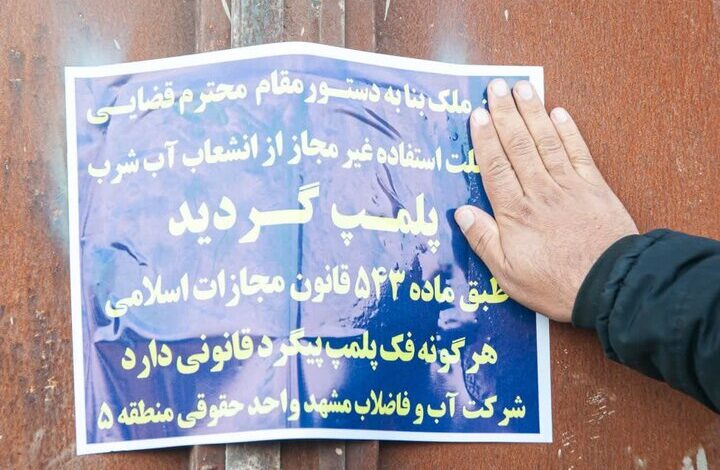 ملک بنا به دستور مقام محترم قضایی
استفاده غیر مجاز از انشعاب آب شرب
پلمپ گردید
طبق ماده ۵۴۳ قانون مجازات اسلامی
هرگونه فک پلمپ پیگرد قانونی دارد
شرکت آب و فاضلاب مشهد واحد حقوقی منطقه ۵